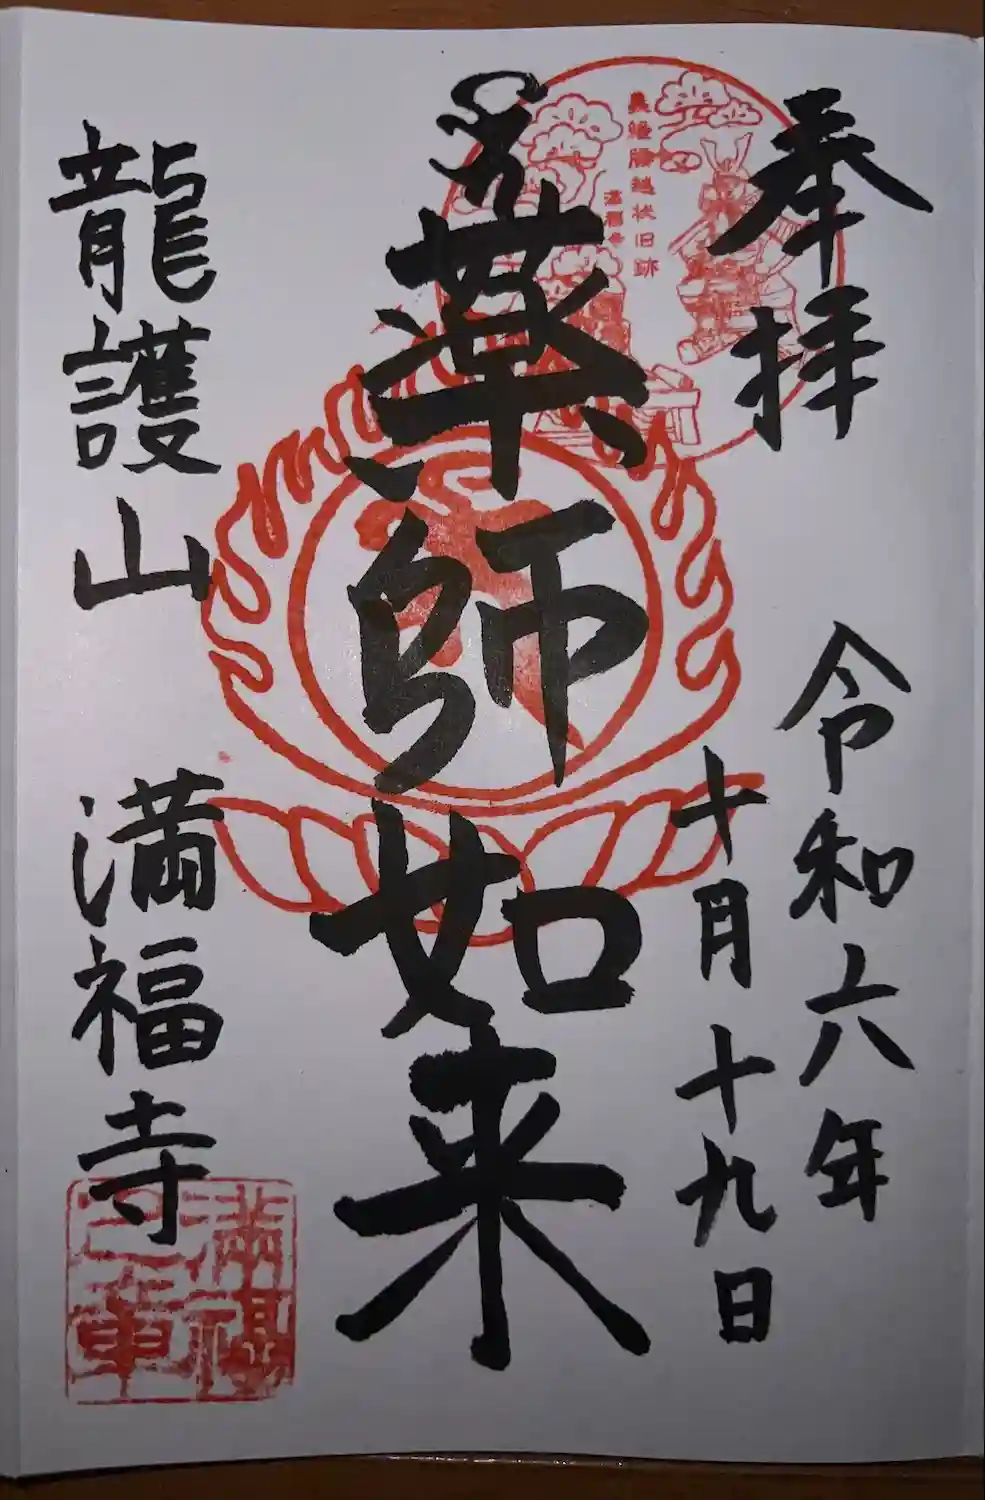 奉拝
令和六年
十月十九日
義経腰越状旧跡
満福寺
薬師如来
龍護山 満福寺
満福